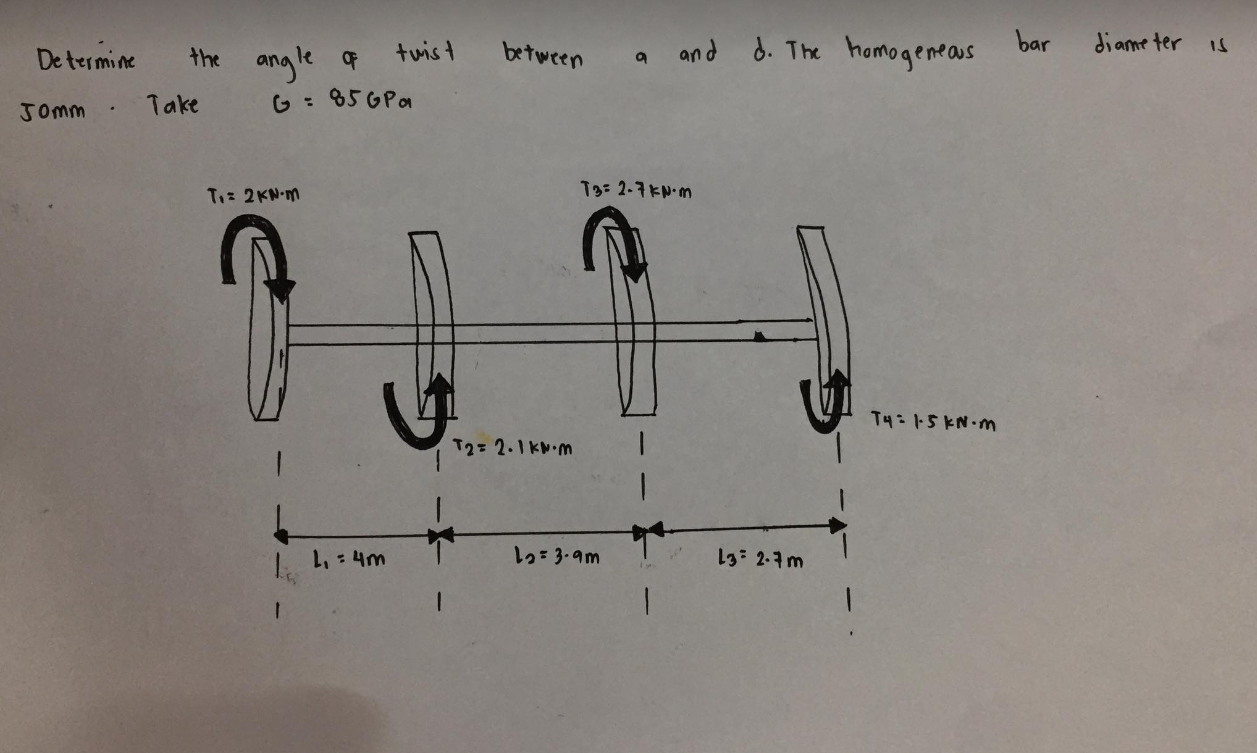 Determine the angle of twist between a and d. The homogeneous bar diameter is
50mm. Take G = 85 GPa
T1 = 2 KN·m
T3 = 2.7 KN·m
T4 = 1.5 KN·m
T2 = 2.1 KN·m
L1 = 4m
L2 = 3.9m
L3 = 2.7m